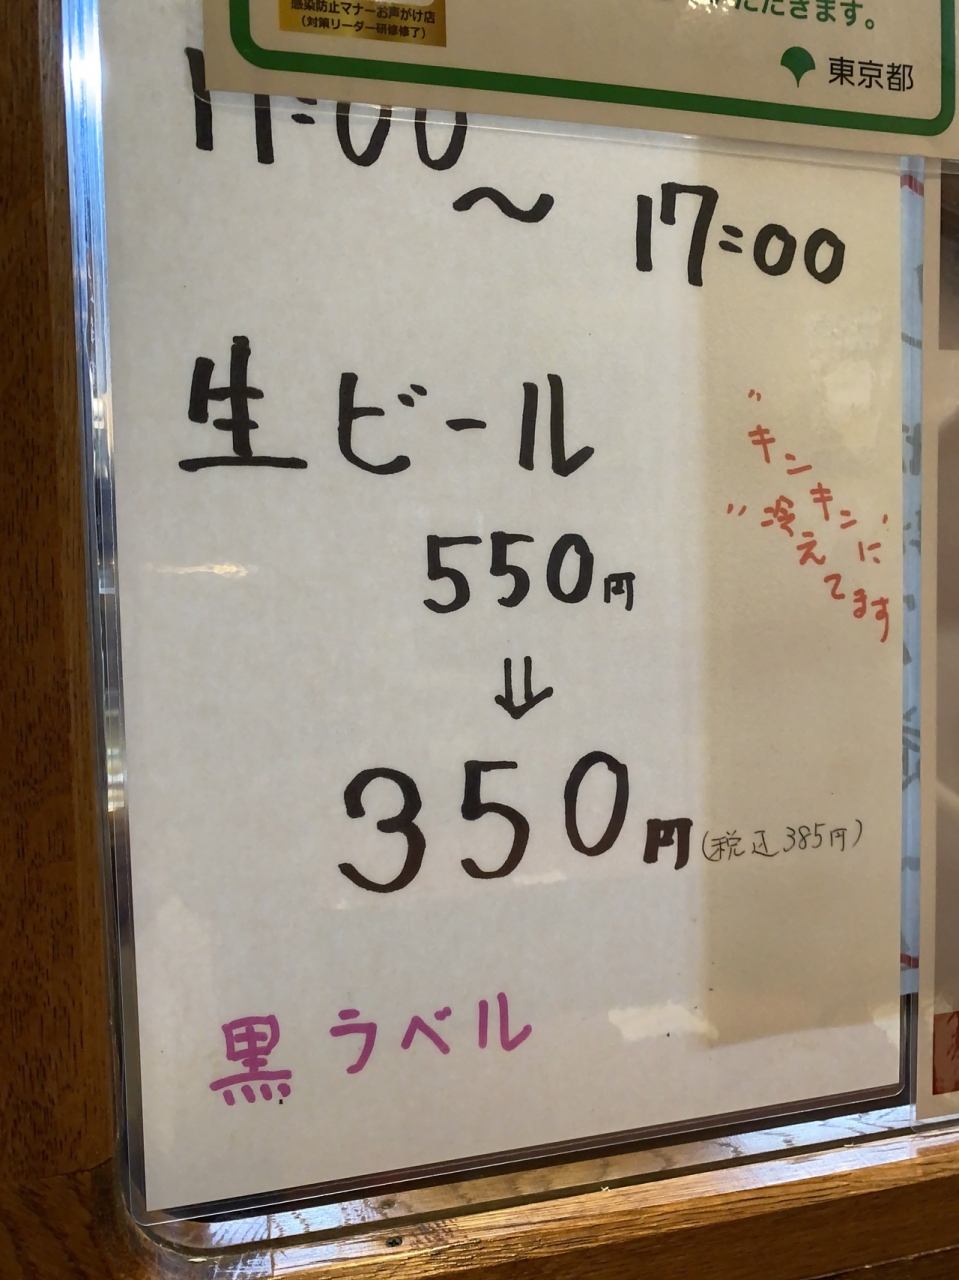 感染防止マナーお声がけ店
(対策リーダー研修修了)
ただきます。
東京都
11:00
〜 17:00
生ビール
550円
⇓
350円(税込385円)
"キンキンに"
"冷えてます
黒ラベル